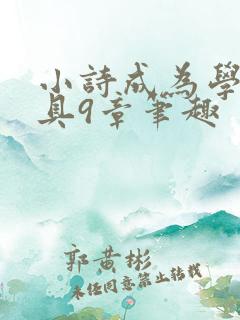 小詩成為學
具9章筆趣
郭黃彬
未經同意禁止轉載